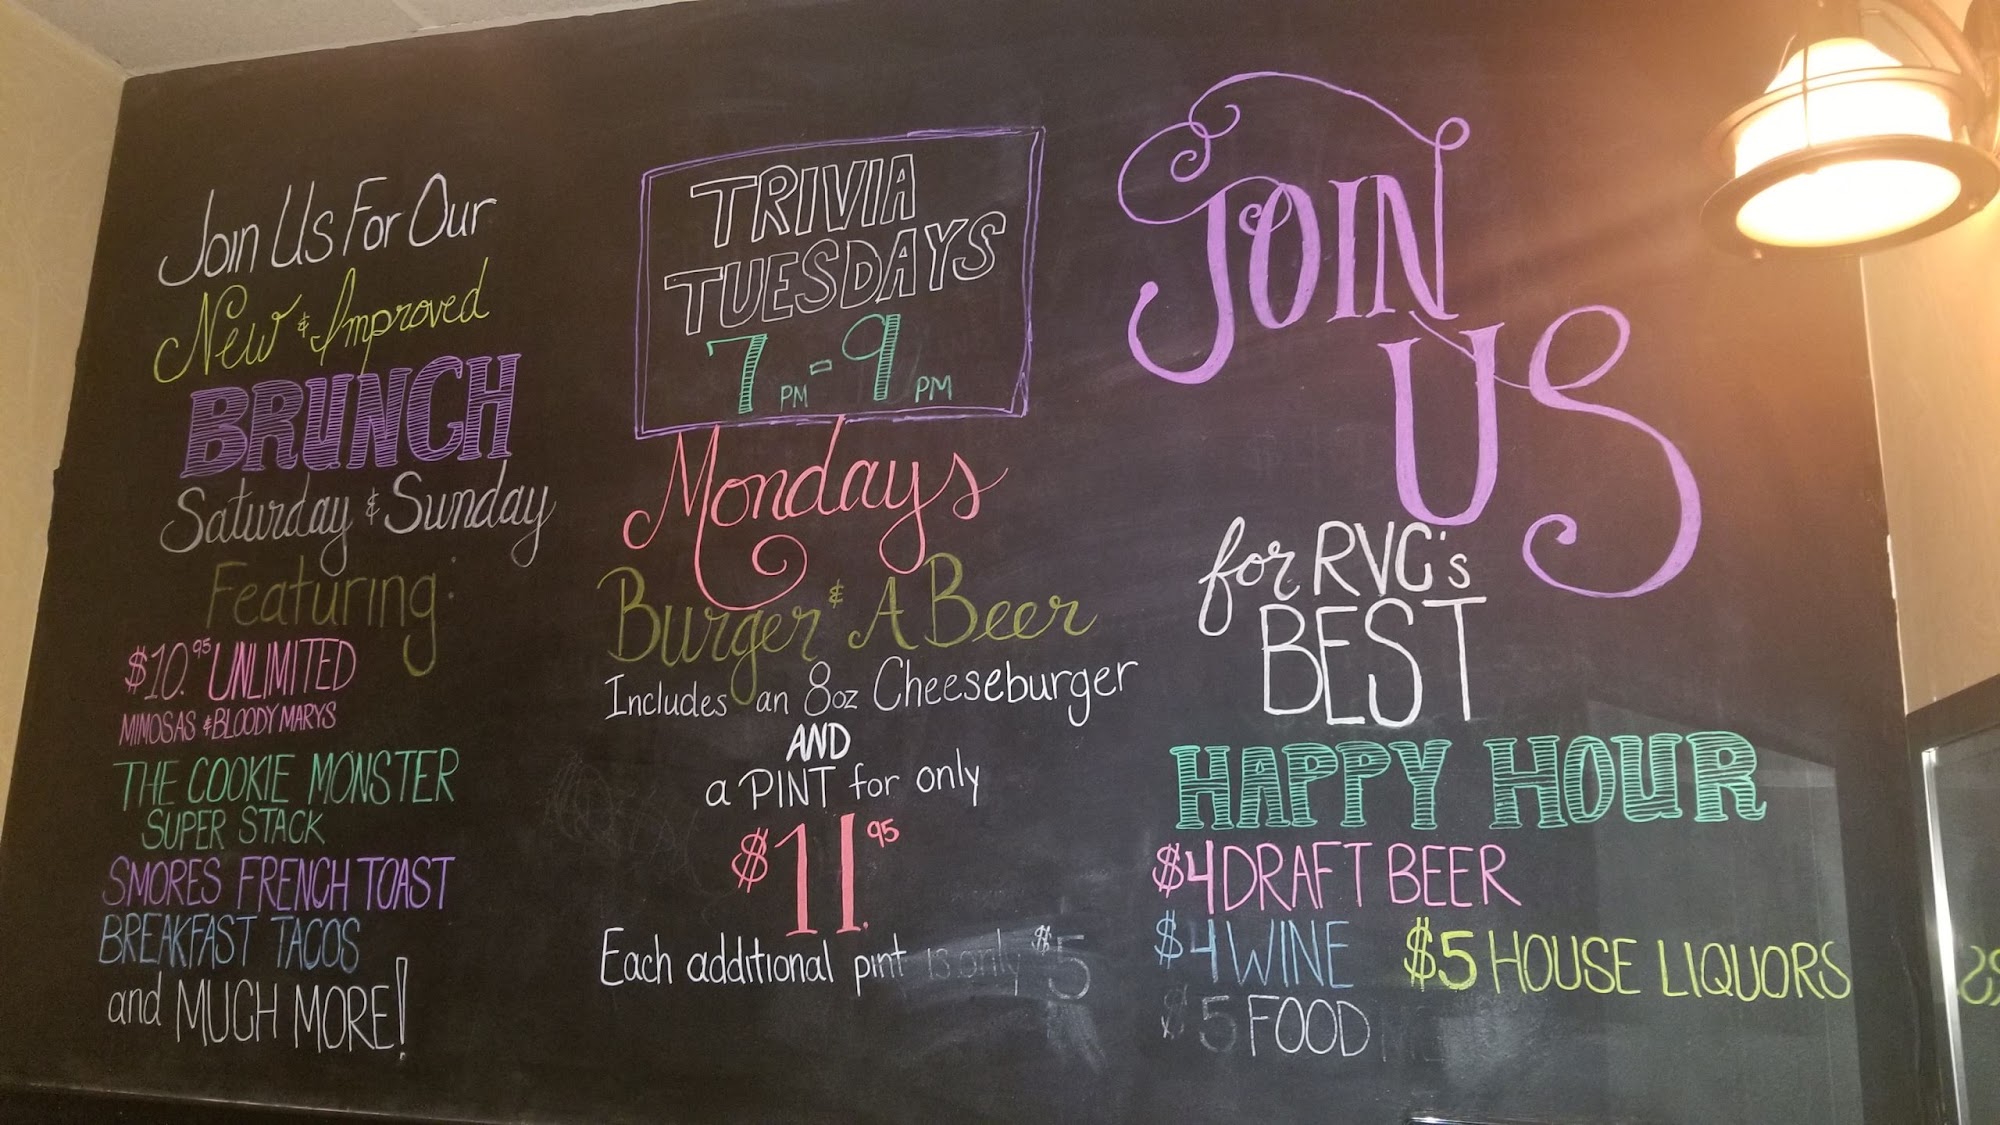 Join Us For Our
New & Improved
BRUNCH
Saturday & Sunday
Featuring:
$10.95 UNLIMITED
MIMOSAS & BLOODY MARYS
THE COOKIE MONSTER
SUPER STACK
SMORES FRENCH TOAST
BREAKFAST TACOS
and MUCH MORE!
TRIVIA
TUESDAYS
7PM-9PM
Mondays
Burger & A Beer
Includes an 8oz Cheeseburger
AND
a PINT for only
$11.95
Each additional pint is only $5
JOIN
US
for RVC's
BEST
HAPPY HOUR
$4 DRAFT BEER
$4 WINE $5 HOUSE LIQUORS
$5 FOOD